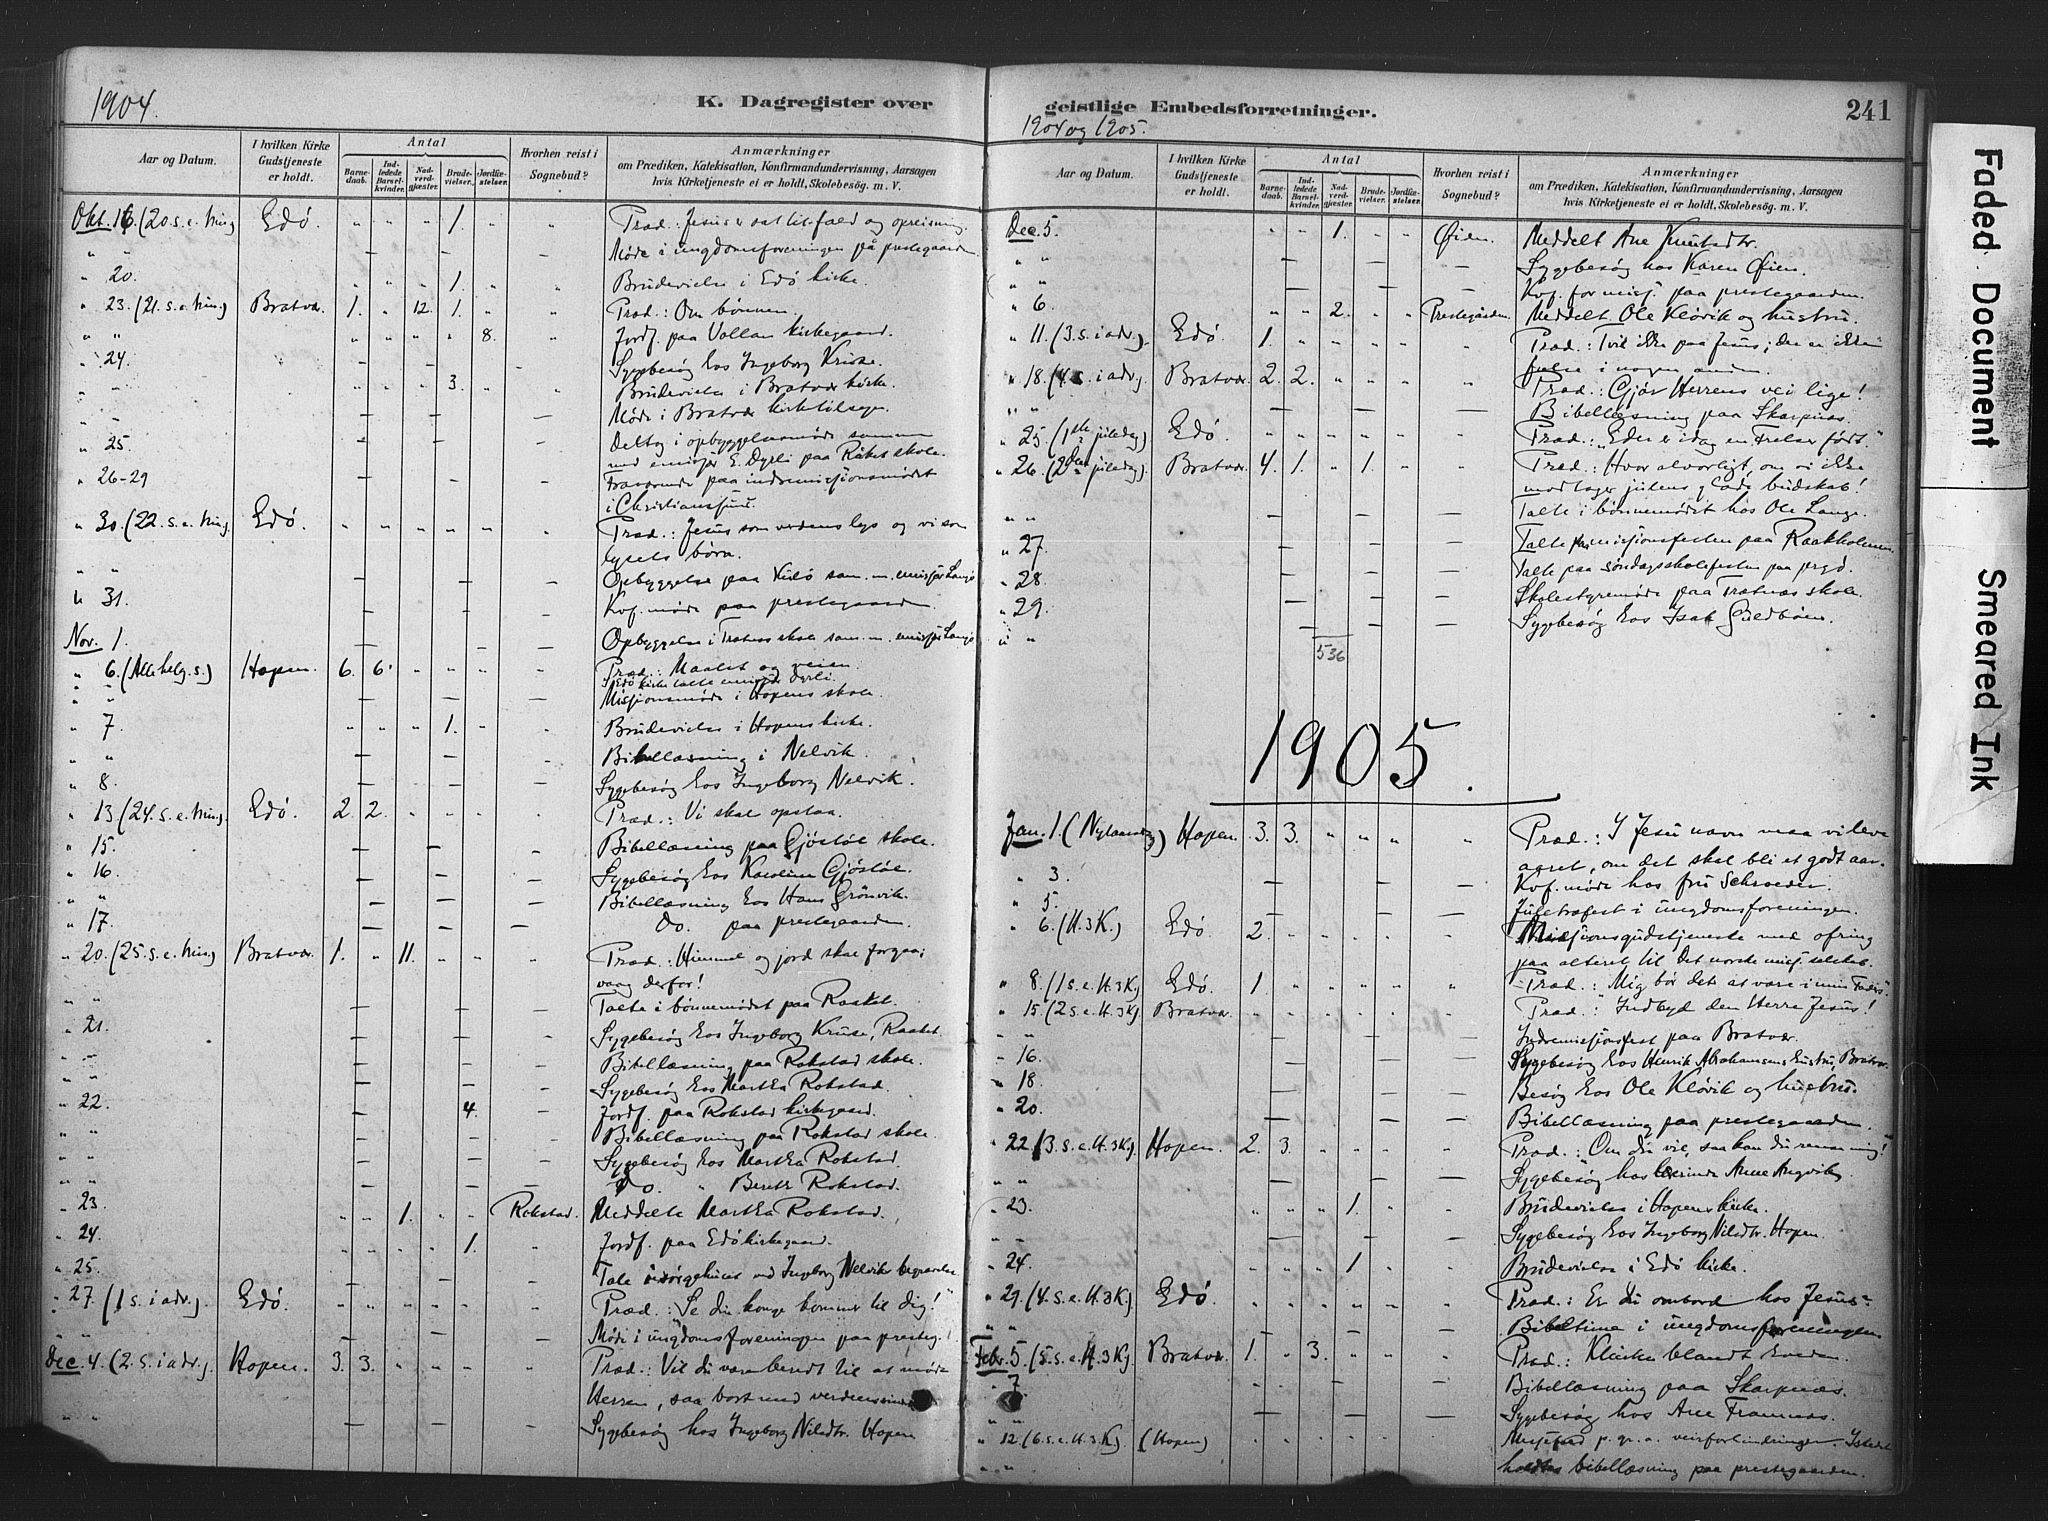 1904.
K. Dagregister over
Aar og Datum.
I hvilken Kirke Gudstjeneste er holdt.
Antal
Barnedaab.
Indledede Barselkvinder.
Nadverdgjæster.
Brudevielser.
Jordfæstelser.
Hvorhen reist i Sognebud?
Anmærkninger
om Prædiken, Katekisation, Konfirmandundervisning, Aarsagen
hvis Kirketjeneste ei er holdt, Skolebesøg. m. V.
Okt. 16 (20 s. e. trin) Edö " " " 1. " " Præd.: Jesus er sat til fald og opreisning.
" " — — — Møde i ungdomsforeningen på prestegaarden
" 20. " " " 1. " " Brudevielse i Edö kirke
" 23. (21. s. e. trin.) Bratvær. 1. " 12. 1. " " Præd.: Om bønnen.
" " " " " " 8. " Jordf. paa Vollan kirkegaard.
" 24. — — — Sygebesøg hos Ingeborg Kruse.
" " " " 3. " " Brudevielse i Bratvær kirke.
" " — — — Møde i Bratvær kirkelage.
" 25 — — — Deltog i opbyggelsesmøde sammen
med emisjær E. Dyrli paa Råket skole.
" 26-29 — — — Fraværende paa indremissjonsmødet
i Christianssund.
" 30. (22. s. e. trin). Edö. " " " " " " Præd.: Jesus som verdens lys og vi som
lysets børn.
" " — — — Opbyggelse paa Kulö sam. m. emisjær Langö
" 31. — — — Kvf. møde paa prestegaarden.
Nov. 1. — — — Opbyggelse i Trætnes skole sam. m. emisjær Langö
" 6. (Alle helg. s.) Hopen. 6. 6. " " " " Præd.: Maalet og veien.
I Edö kirke talte emisjær Dyrli.
" " — — — Missjonsmøde i Hopens skole.
" 7 " " " 1. " " Brudevielse i Hopens kirke.
" " — — — Bibellæsning i Nelvik.
" 8. — — — Sygebesøg hos Ingeborg Nelvik.
" 13 (24. s. e. trin). Edö. 2. 2. " " " " Præd.: Vi skal opstaa.
" 15. — — — Bibellæsning paa Gjöstöl skole.
" 16 — — — Sygebesøg hos Karoline Gjöstöl.
" " — — — Bibellæsning hos Hans Grönvik.
" 17. — — — Do. paa prestegaarden
" 20. (25. s. e. trin) Bratvær. 1. " 11. " " " Præd.: Himmel og jord skal forgaa;
vaag derfor!
" " — — — Talte i bønnemødet paa Raaket.
" 21. — — — Sygebesøg hos Ingeborg Kruse, Raaket.
" " — — — Bibellæsning paa Rokstad skole.
" " — — — Sygebesøg hos Martha Rokstad.
" 22. — 4. — Jordf. paa Rokstad kirkegaard.
" " — — — Bibellæsning paa Rokstad skole.
" " — — — Sygebesøg hos Martha Rokstad.
" " — — — Do. " Berit Rokstad.
" 23 " " 1. " " Rokstad. Meddelte Martha Rokstad.
" 24. " " " " 1. " Jordf. paa Edö kirkegaard.
" 25. — — — Tale i sørgehuset ved Ingeborg Nelviks begravelse
" 27. (1 s. i adv). Edö. " " " " " " Præd.: "Se din konge kommer til dig!"
" " — — — Møde i ungdomsforeningen paa presteg.!
Dec. 4. (2. s. i adv). Hopen. 3. 3. " " " " Præd.: Vil du være beredt til at møde
Herren, saa bort med verdenssind
" " — — — Sygebesøg hos Ingeborg Nilsdtr. Hopen
geistlige Embedsforretninger.
241
1904 og 1905.
Aar og Datum.
I hvilken Kirke Gudstjeneste er holdt.
Antal
Barnedaab.
Indledede Barselkvinder.
Nadverdgjæster.
Brudevielser.
Jordfæstelser.
Hvorhen reist i Sognebud?
Anmærkninger
om Prædiken, Katekisation, Konfirmandundervisning, Aarsagen
hvis Kirketjeneste ei er holdt, Skolebesøg. m. V.
Dec. 5. " " 1. " " Øien. Meddelt Ane Knutsdtr.
" " — — — Sygebesøg hos Karen Øien.
" " — — — Kvf. for misj. paa prestegaarden.
" 6. " " 2. " " Prestegården. Meddelt Ole Klövik og hustru.
" 11. (3. s. i adv). Edö. 1. " " " " " Præd.: Tvil ikke paa Jesus; der er ikke
frelse i nogen anden.
" 18. (4. s. i adv). Bratvær. 2. 2. " " " " Præd.: Gjør Herrens vei lige!
" " — — — Bibellæsning paa Skarpnæs.
" 25. (1ste juledag) Edö. " " " " " " Præd.: "Eder er idag en Frelser født."
" 26. (2den juledag). Bratvær. 4. 1. " 1. " " Præd.: Hvor alvorligt, om vi ikke
modtager julens glade budskab!
" " — — — Talte i bønnemødet hos Ole Lange.
" 27. — — — Talte paa missjonsfesten paa Raakholmen
" 28. — — — Talte paa söndagsskolefesten paa prgd.
" 29. — — — Skolestyremøde paa Trætnæs skole.
" " — — — Sygebesøg hos Isak Guldböen.
536
1905.
Jan. 1. (Nytaarsdag) Hopen. 3. 3. " " " " Præd.: I Jesu navn maa vi leve
aaret, om det skal bli et godt aar.
" 3. — — — Kvf. møde hos fru Schroeder.
" 5. — — — Juletræfest i ungdomsforeningen.
" 6. (H. 3 K.) Edö. 2. " " " " " Missjonsgudstjeneste med ofring
paa alteret til Det norske misj. selskab.
" 8. (1 s. e. H. 3 K) Edö. 1. " " " " " Præd.: "Mig bør det at være i min Faders".
" 15. (2 s. e. H. 3 K). Bratvær. " " " " " " Præd.: Indbyd den Herre Jesus!
" " — — — Indremissjonsfest paa Bratvær.
" 16. — — — Sygebesøg hos Henrik Abrahamsens hustru, Bratvær
" 18. — — — Besøg hos Ole Klövik og hustru.
" 20. — — — Bibellæsning paa prestegaarden.
" 22. (3. s. e. H. 3 K). Hopen. 2. 3. " " " " Præd.: "Om du vil, saa kan du rense mig!"
" " — — — Sygebesøg hos lærerinde Anne Angvik
" 23. " " " 1. " " Brudevielse i Hopens kirke.
" " — — — Sygebesøg hos Ingeborg Nilsdtr. Hopen.
" 24. " " " 1. " " Brudevielse i Edö kirke.
" 29. (4. s. e. H. 3 K.) Edö. " " " " " " Præd.: Er du ombord hos Jesus?
" " — — — Bibeltime i ungdomsforeningen
Febr. 5. (5. s. e. H. 3 K). Bratvær. 1. " 3. " " " Præd.: Klinte blandt hveden.
" 7. — — — Bibellæsning paa Skarpnæs.
" " — — — Sygebesøg hos Ane Framnæs.
" 12. (6. s. e. H. 3 K.) (Hopen) " " " " " " Messefald p. gr. a. veirforhindringer. Istedet
" " holdtes bibellæsning paa prestegaarden.
Faded Document
Smeared Ink